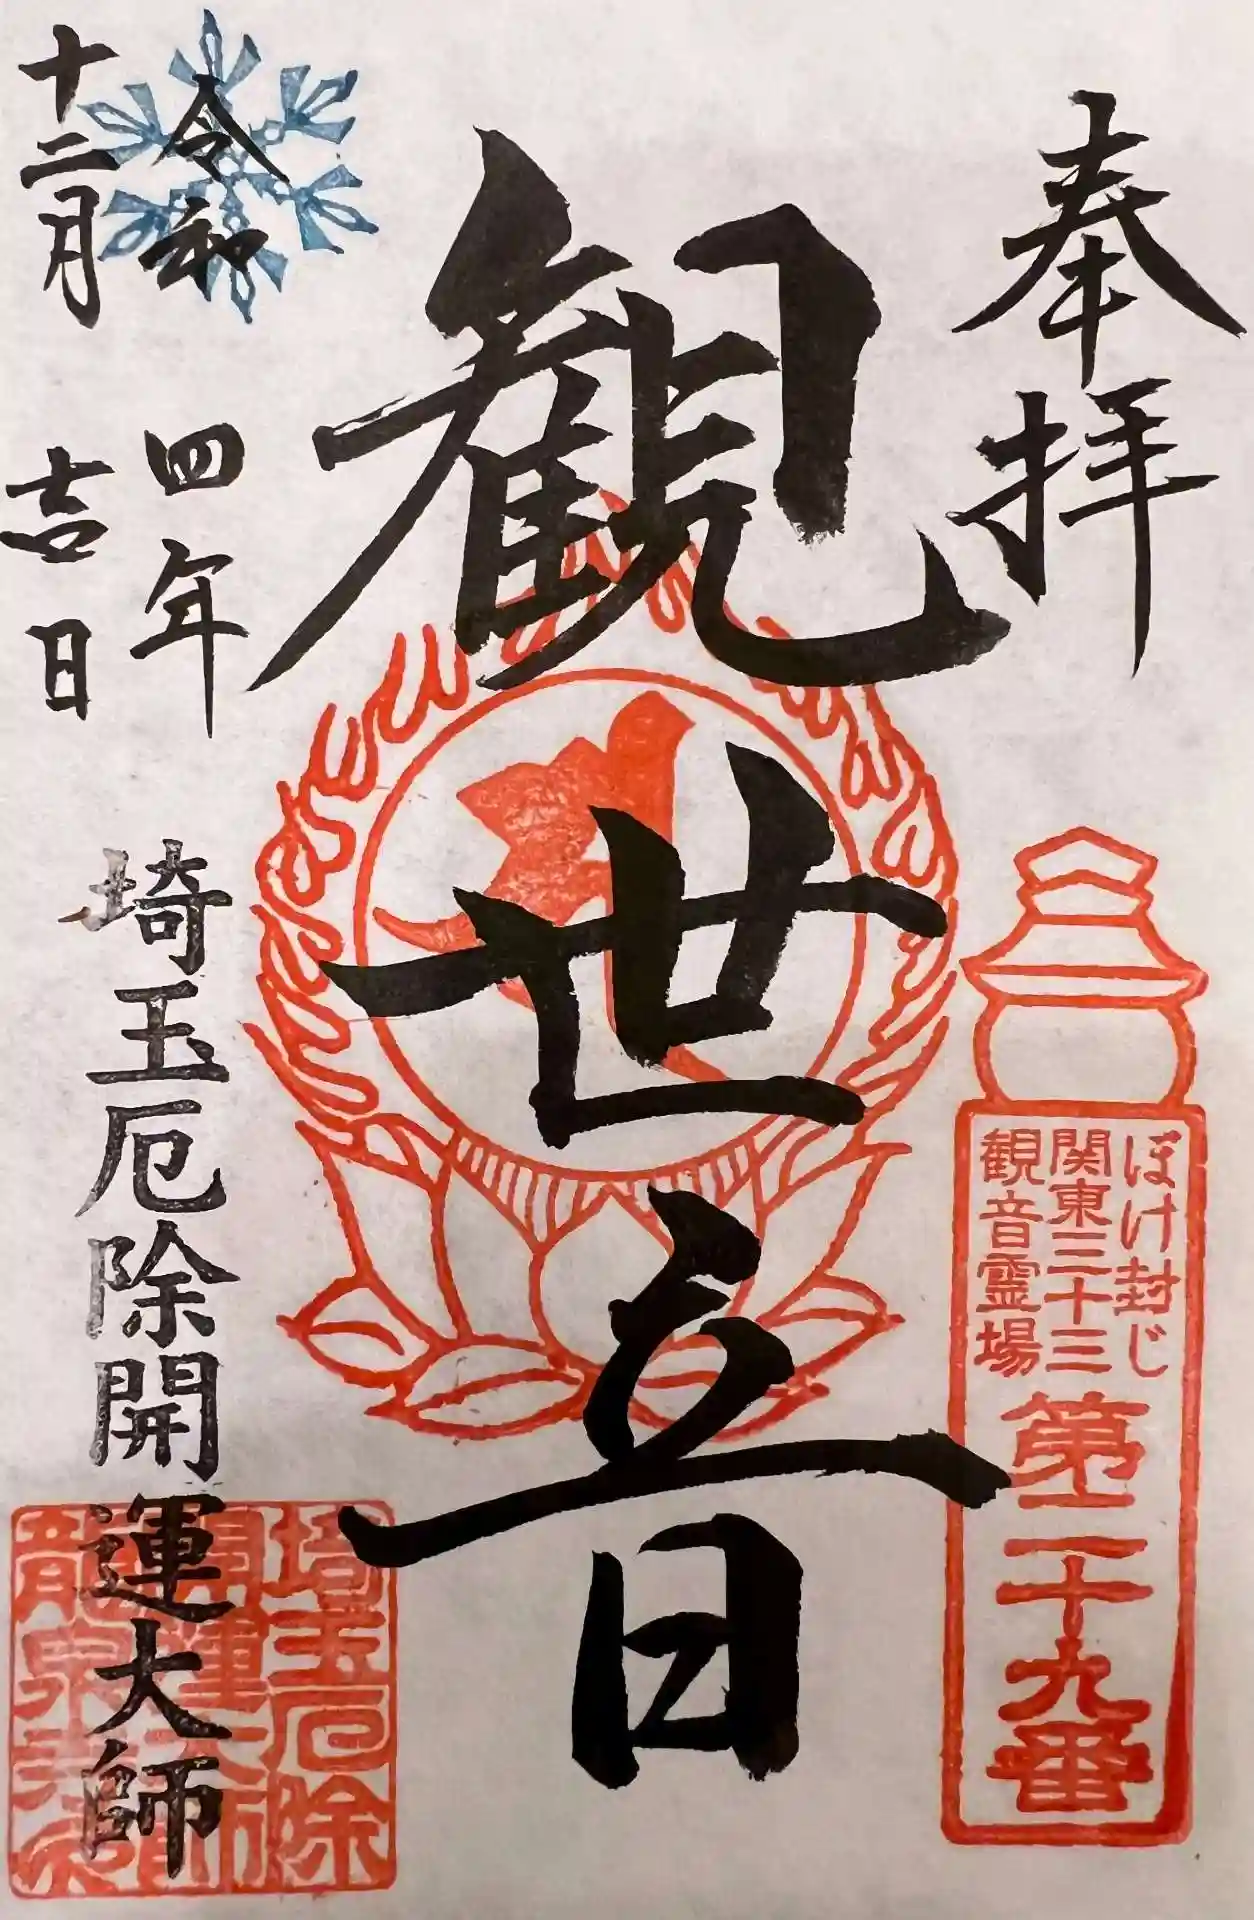 奉拝
ぼけ封じ
関東三十三
観音霊場
第二十九番
観世音
令和四年
十二月吉日
埼玉厄除開運大師
埼玉厄除
開運大師